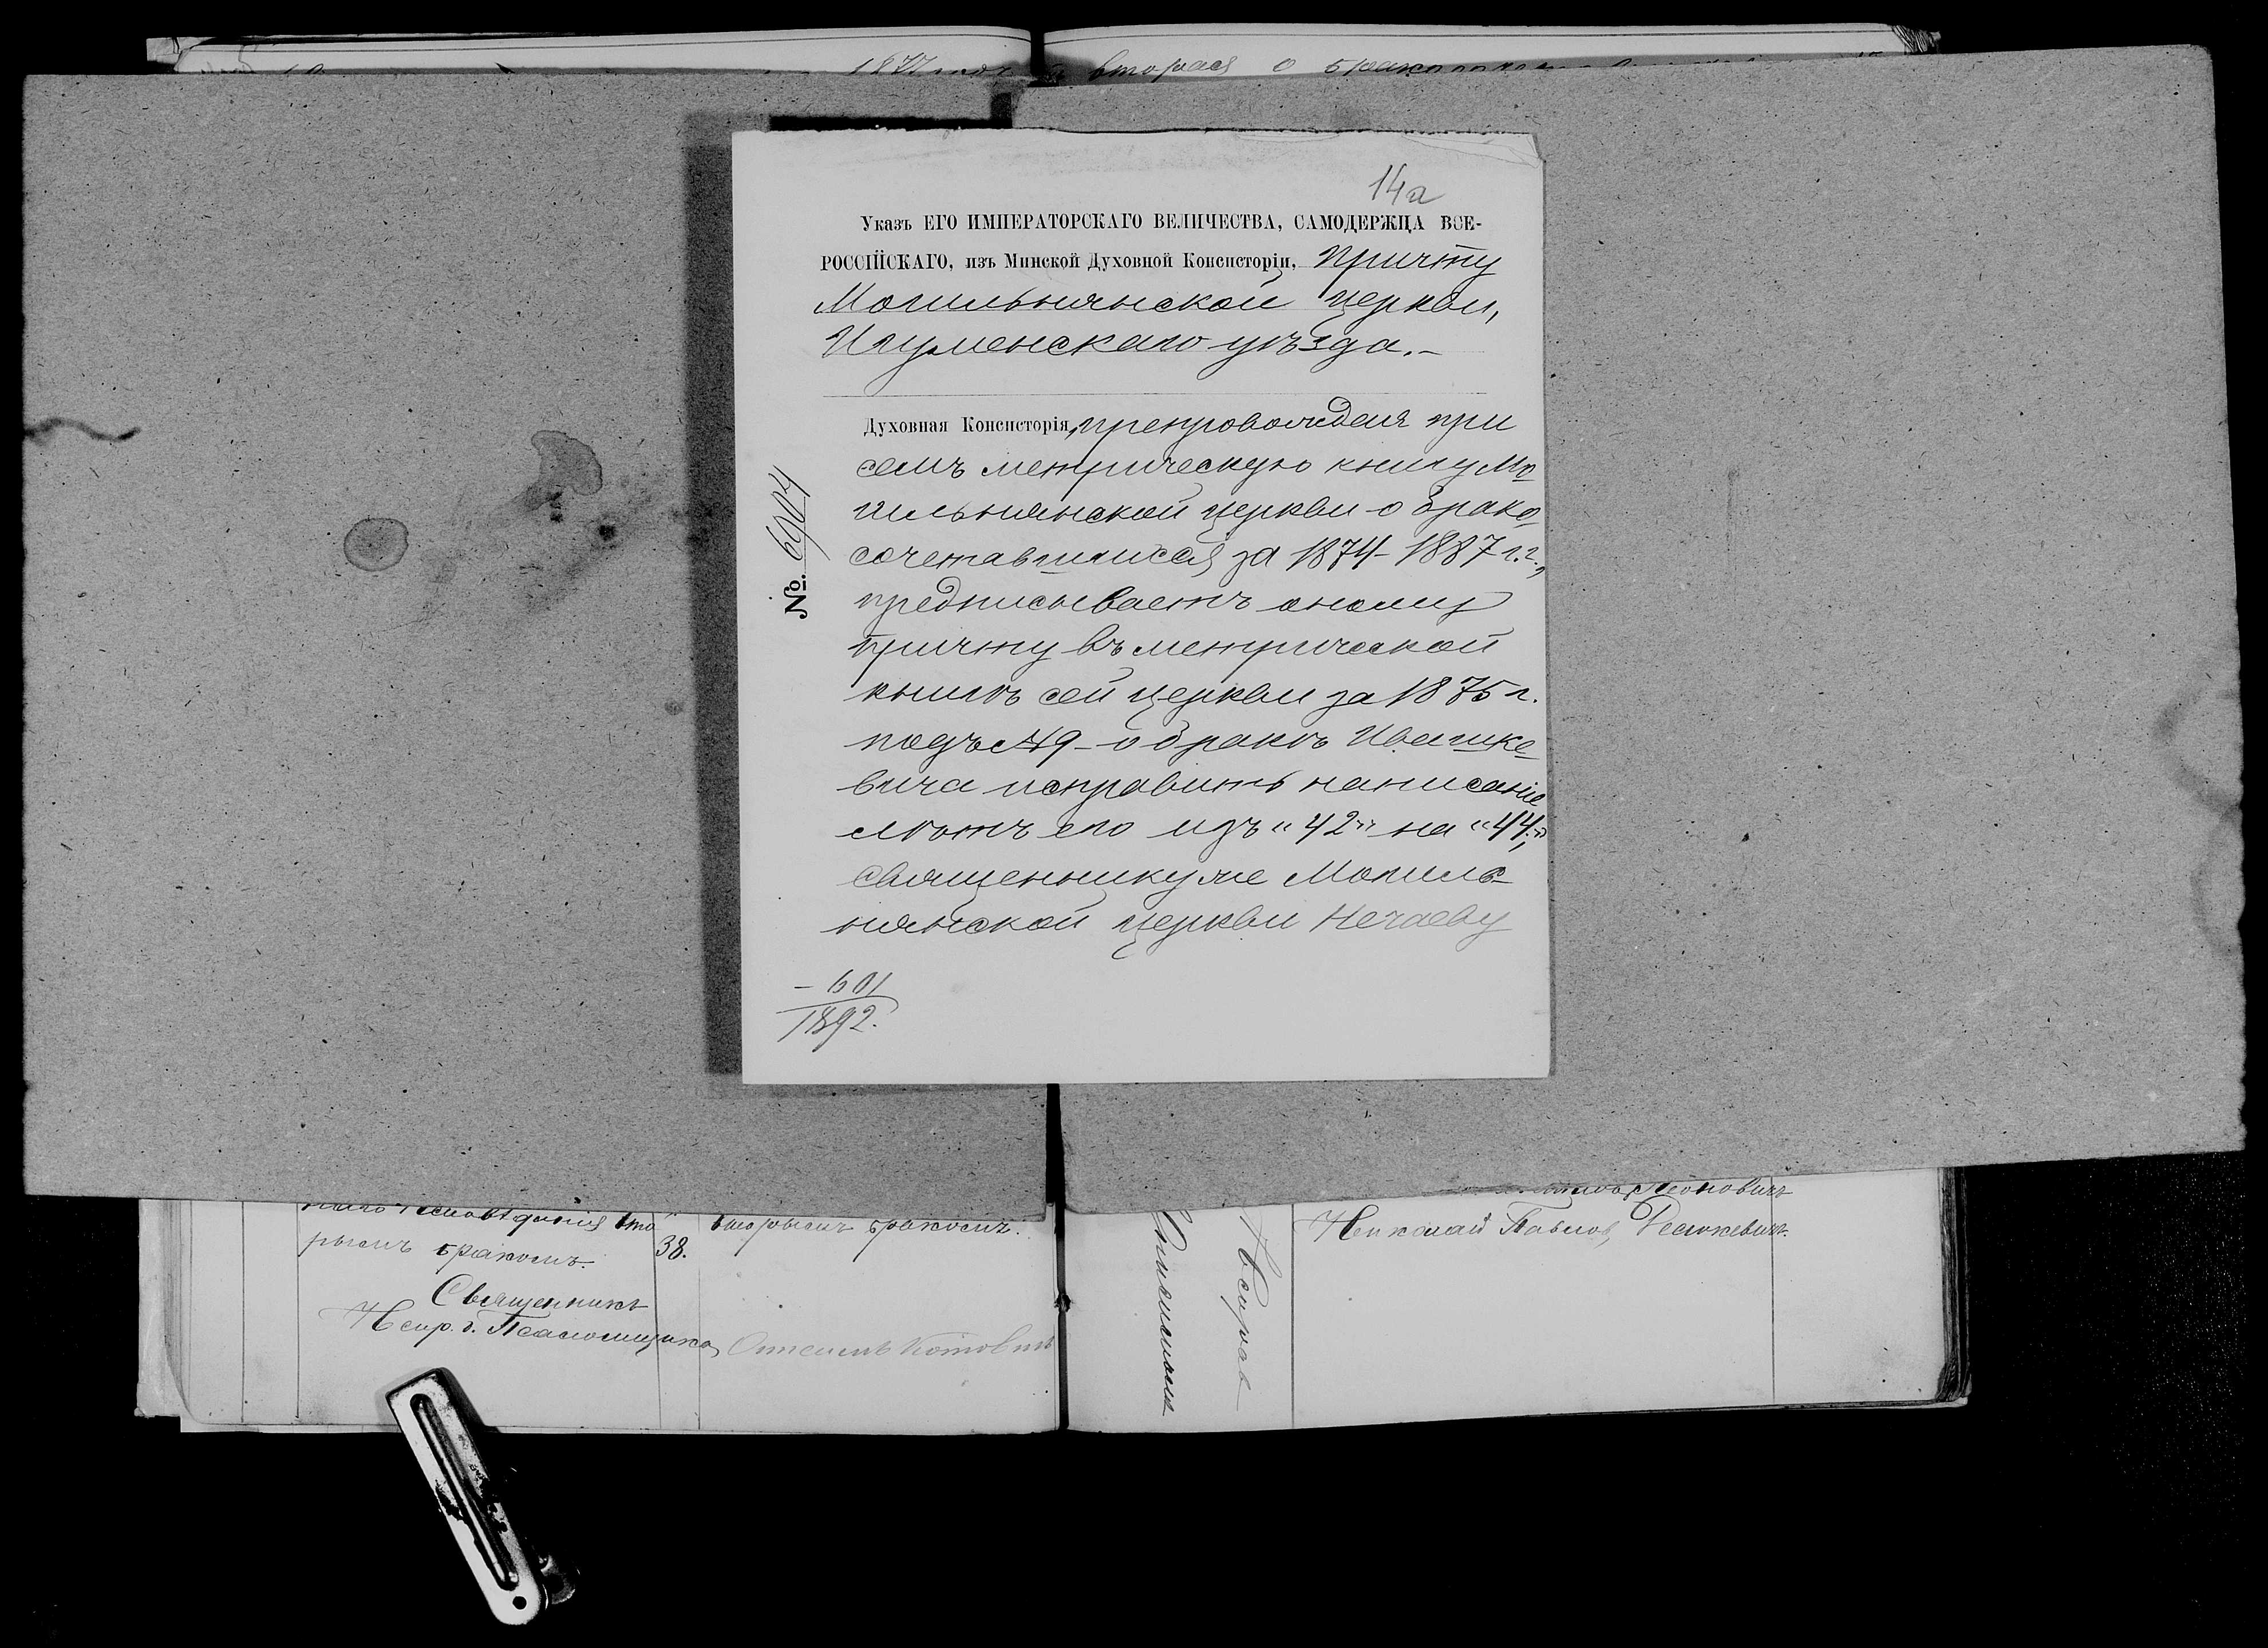 1877 года вторая о
14а
Указъ ЕГО ИМПЕРАТОРСКАГО ВЕЛИЧЕСТВА, САМОДЕРЖЦА ВСЕ-
РОССІЙСКАГО, изъ Минской Духовной Консисторіи, Причту
Могильнянской церкви,
Игуменскаго уѣзда.-
Духовная Консисторія, препровождая при
семъ метрическую книгу Мо
гильнянской церкви о брако
сочетавшихся за 1874-1887 г.г.,
предписываетъ оному
причту въ метрической
книгѣ сей церкви за 1875 г.
подъ № 9 - о бракѣ Ивашке
вича исправить написаніе
лѣтъ его изъ "42" на "44",
священнику же Могиль-
нянской церкви Нечаеву
№. 6904
- 601
1892.
вто
рымъ бракомъ.
38.
вторымъ бракомъ.
Священникъ
Испр. д. Псаломщика
Николай Павлов,